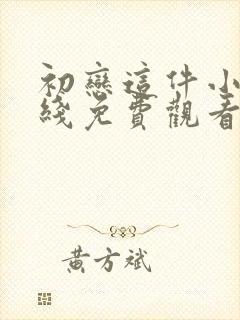 初戀這件小
綫免費觀看
黃方斌